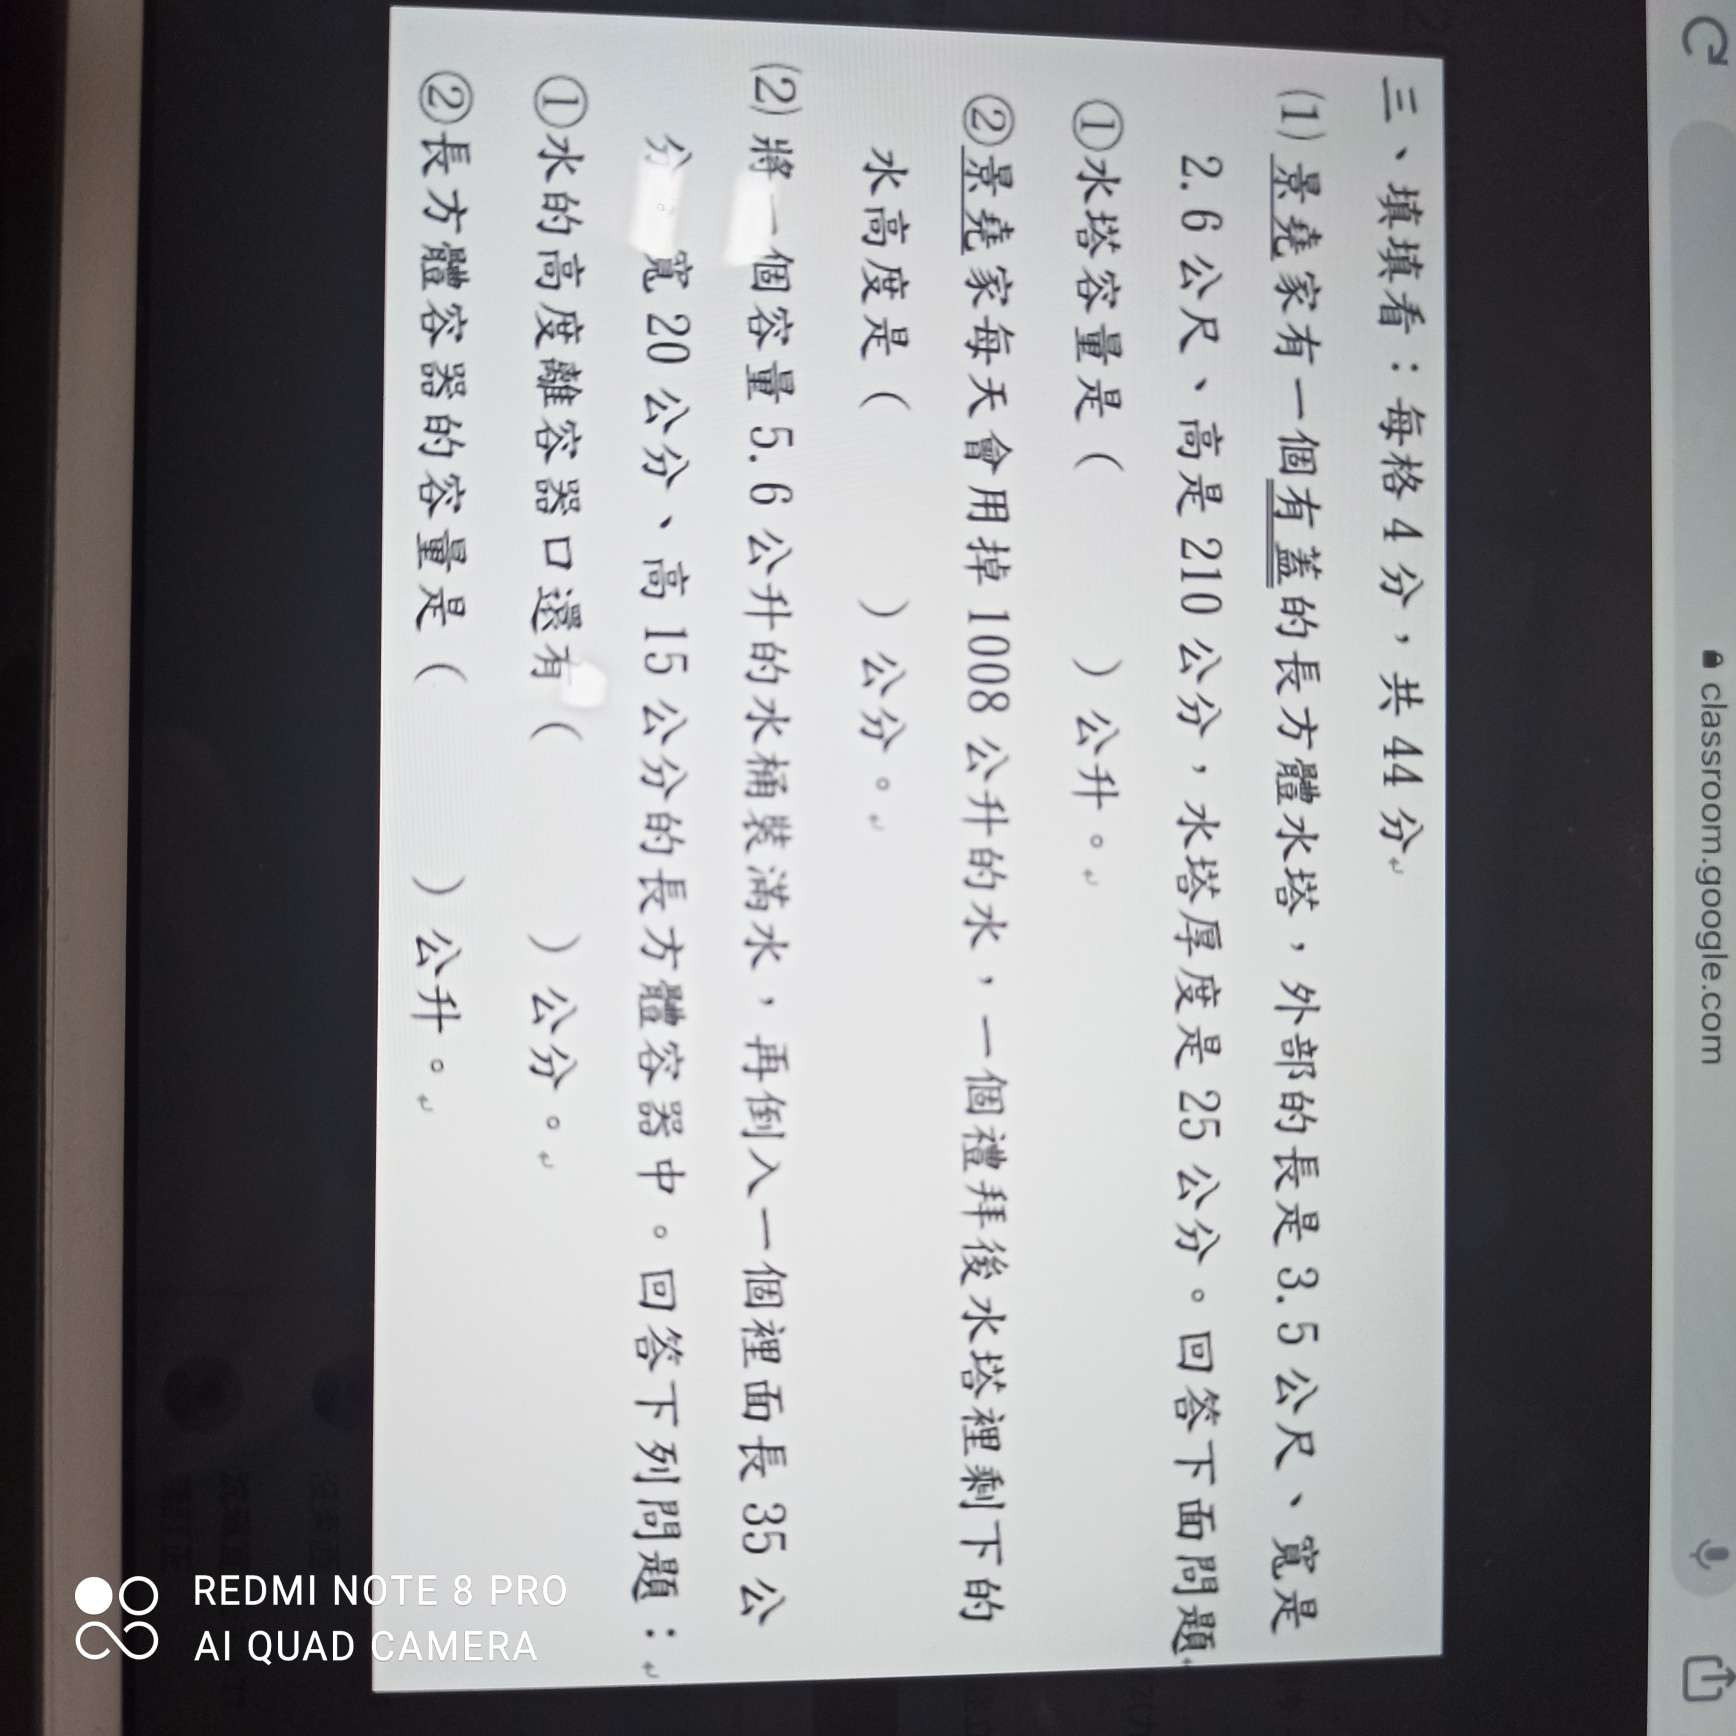 classroom.google.com
三、填填看：每格4分，共44分
(1)景堯家有一個有蓋的長方體水塔，外部的長是3.5公尺、寬是
2.6公尺、高是210公分，水塔厚度是25公分。回答下面問題
①水塔容量是（　　　）公升。
②景堯家每天會用掉1008公升的水，一個禮拜後水塔裡剩下的
水高度是（　　　）公分。
(2)將一個容量5.6公升的水桶裝滿水，再倒入一個裡面長35公
分、寬20公分、高15公分的長方體容器中。回答下列問題：
①水的高度離容器口還有（　　　）公分。
②長方體容器的容量是（　　　）公升。
REDMI NOTE 8 PRO
AI QUAD CAMERA